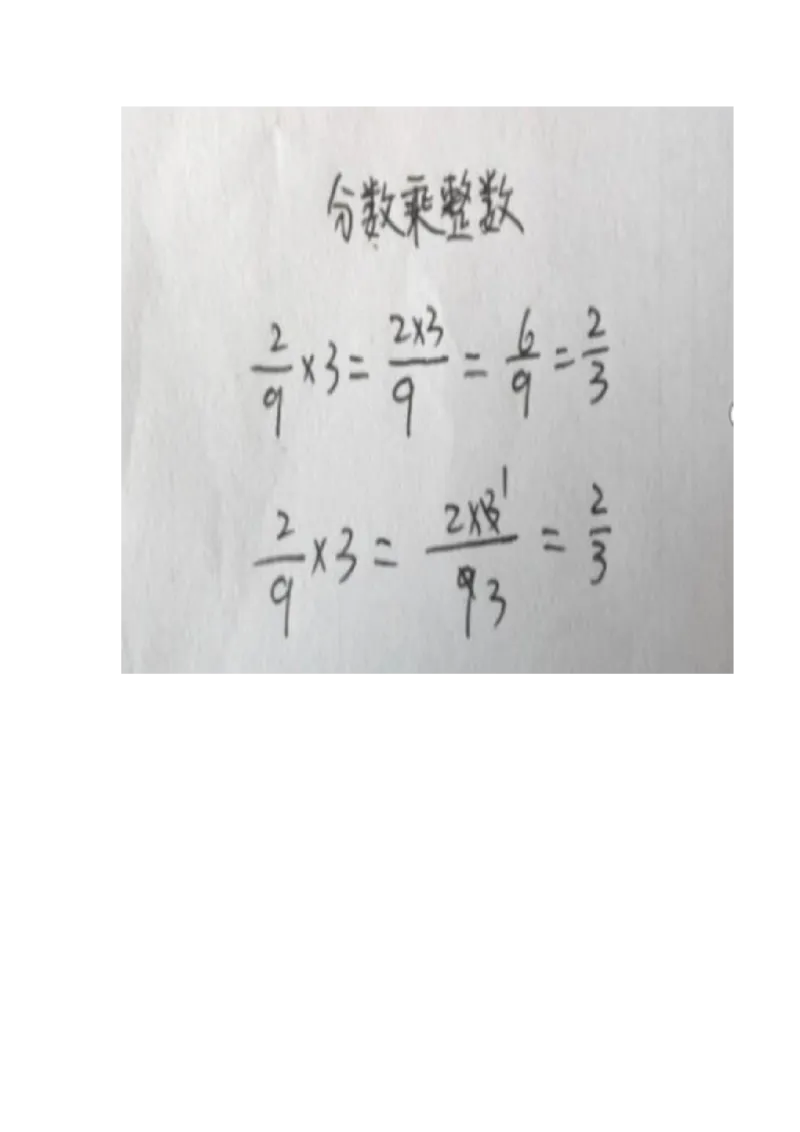 分数乘整数
2/9 × 3 = 2×3/9 = 6/9 = 2/3
2/9 × 3 = 2×3 1/9 3 = 2/3